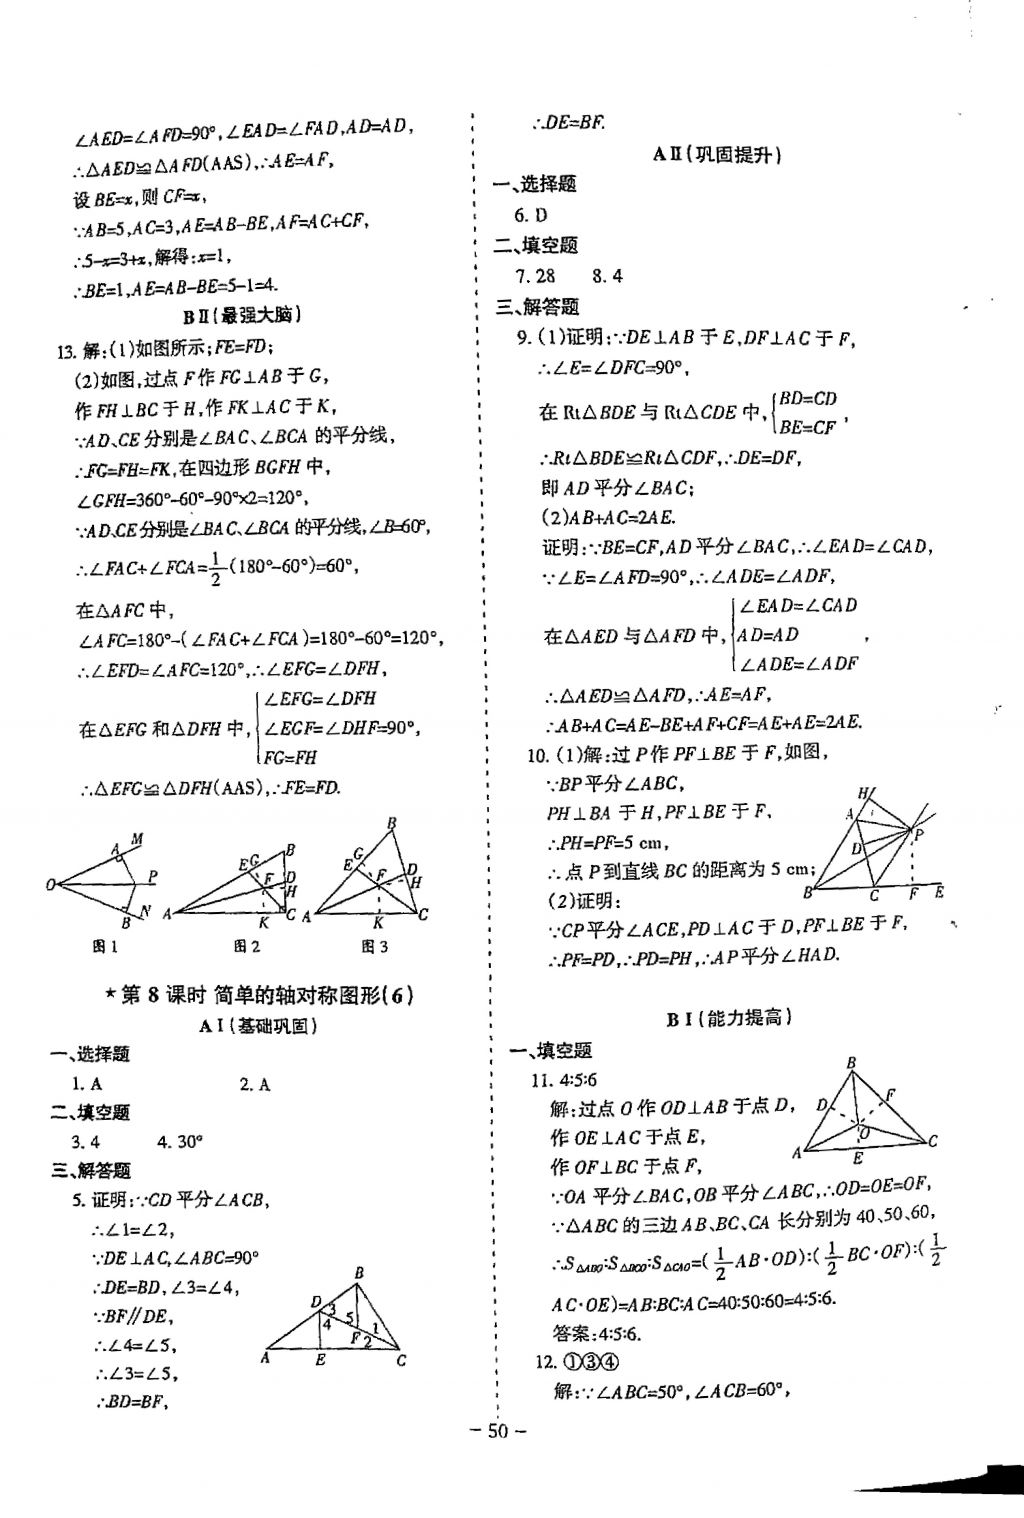 ∠AED=∠AFD=90°,∠EAD=∠FAD,AD=AD,
∴△AED≌△AFD(AAS),∴AE=AF,
设 BE=x,则 CF=x,
∵AB=5,AC=3,AE=AB-BE,AF=AC+CF,
∴5-x=3+x,解得:x=1,
∴BE=1,AE=AB-BE=5-1=4.
BⅡ(最强大脑)
13. 解:(1)如图所示;FE=FD;
(2)如图,过点 F 作 FG⊥AB 于 G,
作 FH⊥BC 于 H,作 FK⊥AC 于 K,
∵AD、CE 分别是∠BAC、∠BCA 的平分线,
∴FG=FH=FK,在四边形 BGFH 中,
∠GFH=360°-60°-90°×2=120°,
∵AD、CE 分别是∠BAC、∠BCA 的平分线,∠B=60°,
∴∠FAC+∠FCA=1/2(180°-60°)=60°,
在△AFC 中,
∠AFC=180°-(∠FAC+∠FCA)=180°-60°=120°,
∴∠EFD=∠AFC=120°,∴∠EFG=∠DFH,
∠EFG=∠DFH
在△EFG 和△DFH 中,{∠EGF=∠DHF=90°,
FG=FH
∴△EFG≌△DFH(AAS),∴FE=FD.
O A M P B N
图 1
A B C D E F G H K
图 2
A B C D E F G H K
图 3
★第 8 课时 简单的轴对称图形(6)
AⅠ(基础巩固)
一、选择题
1. A 2. A
二、填空题
3. 4 4. 30°
三、解答题
5. 证明:∵CD 平分∠ACB,
∴∠1=∠2,
∵DE⊥AC,∠ABC=90°
∴DE=BD,∠3=∠4,
∵BF∥DE,
∴∠4=∠5,
∴∠3=∠5,
∴BD=BF,
B D 3 4 5 1 F 2 A E C
∴DE=BF.
AⅡ(巩固提升)
一、选择题
6. D
二、填空题
7. 28 8. 4
三、解答题
9. (1)证明:∵DE⊥AB 于 E,DF⊥AC 于 F,
∴∠E=∠DFC=90°,
在 Rt△BDE 与 Rt△CDE 中,{BD=CD
BE=CF,
∴Rt△BDE≌Rt△CDF,∴DE=DF,
即 AD 平分∠BAC;
(2)AB+AC=2AE.
证明:∵BE=CF,AD 平分∠BAC,∴∠EAD=∠CAD,
∵∠E=∠AFD=90°,∴∠ADE=∠ADF,
∠EAD=∠CAD
在△AED 与△AFD 中,{AD=AD,
∠ADE=∠ADF
∴△AED≌△AFD,∴AE=AF,
∴AB+AC=AE-BE+AF+CF=AE+AE=2AE.
10. (1)解:过 P 作 PF⊥BE 于 F,如图,
∵BP 平分∠ABC,
PH⊥BA 于 H,PF⊥BE 于 F,
∴PH=PF=5 cm,
∴点 P 到直线 BC 的距离为 5 cm;
(2)证明:
∵CP 平分∠ACE,PD⊥AC 于 D,PF⊥BE 于 F,
∴PF=PD,∴PD=PH,∴AP 平分∠HAD.
H A P D B C F E
BⅠ(能力提高)
一、填空题
11. 4:5:6
解:过点 O 作 OD⊥AB 于点 D,
作 OE⊥AC 于点 E,
作 OF⊥BC 于点 F,
∵OA 平分∠BAC,OB 平分∠ABC,∴OD=OE=OF,
∵△ABC 的三边 AB、BC、CA 长分别为 40、50、60,
∴S△ABO:S△BCO:S△CAO=(1/2AB·OD):(1/2BC·OF):(1/2
AC·OE)=AB:BC:AC=40:50:60=4:5:6.
答案:4:5:6.
B D F O A E C
12. ①③④
解:∵∠ABC=50°,∠ACB=60°,
- 50 -